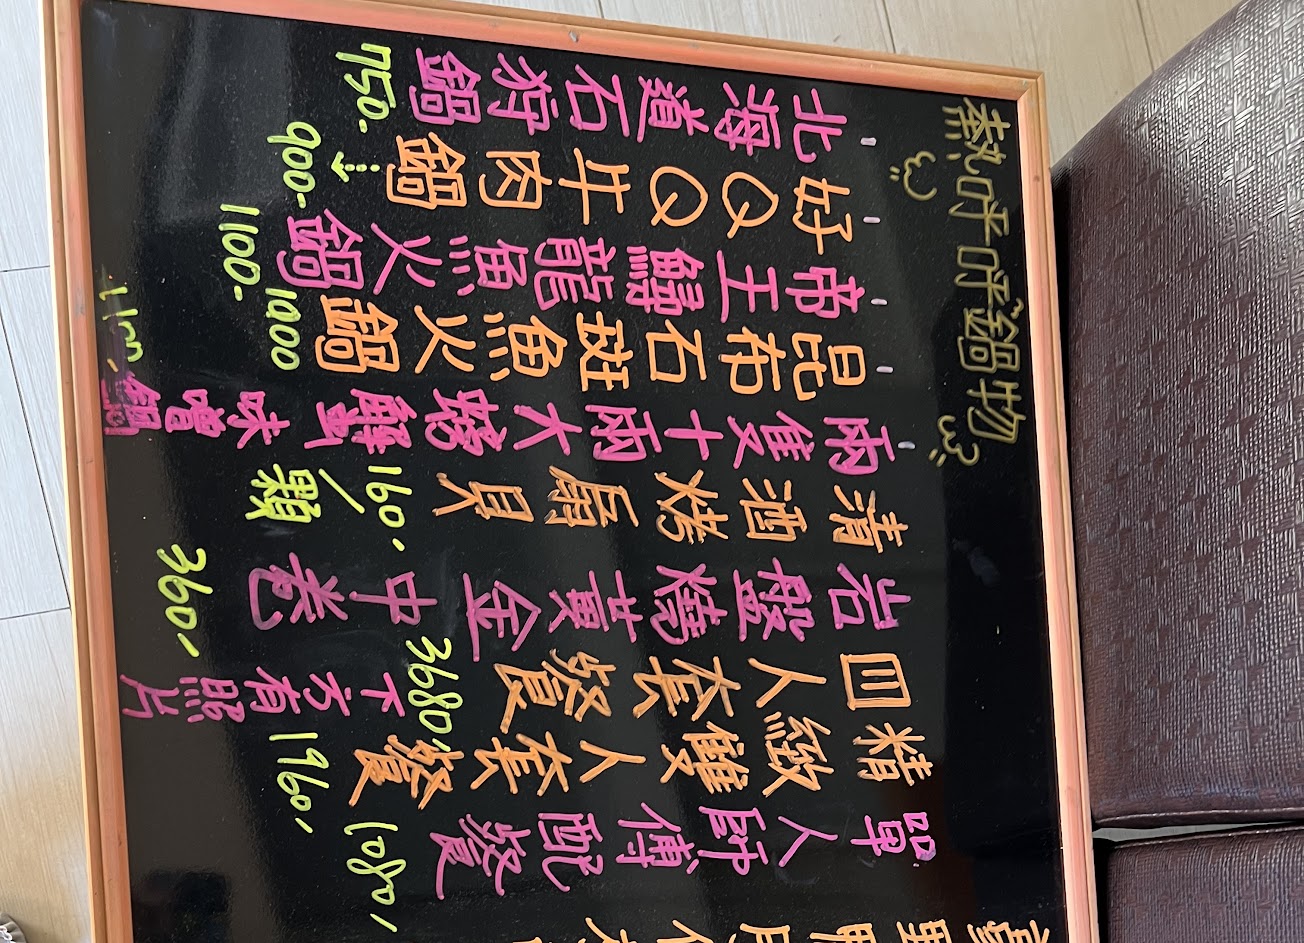 熱呼呼鍋物
北海道石狩鍋 750.
好QQ牛肉鍋 900.
帝王鱘龍魚火鍋 1100.
昆布石斑魚火鍋 1000
兩隻十兩大螃蟹味噌鍋 1100.
清酒烤扇貝 160./顆
岩盤燒黃金中卷 360.
四人套餐 3680. 下方有照片
精緻雙人套餐 1960.
單人師傅配餐 1080.